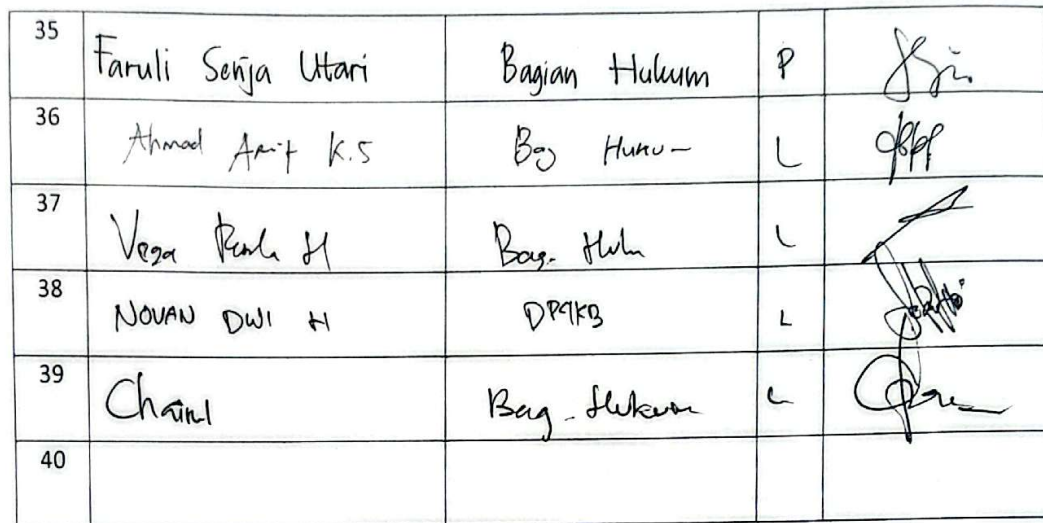 35 Faruli Senja Utari Bagian Hukum P
36 Ahmad Arif K.S Bag Hukum L
37 Vega H Bag. Huk L
38 NOVAN DWI H DPPKB L
39 Chairul Bag. Hukum L
40